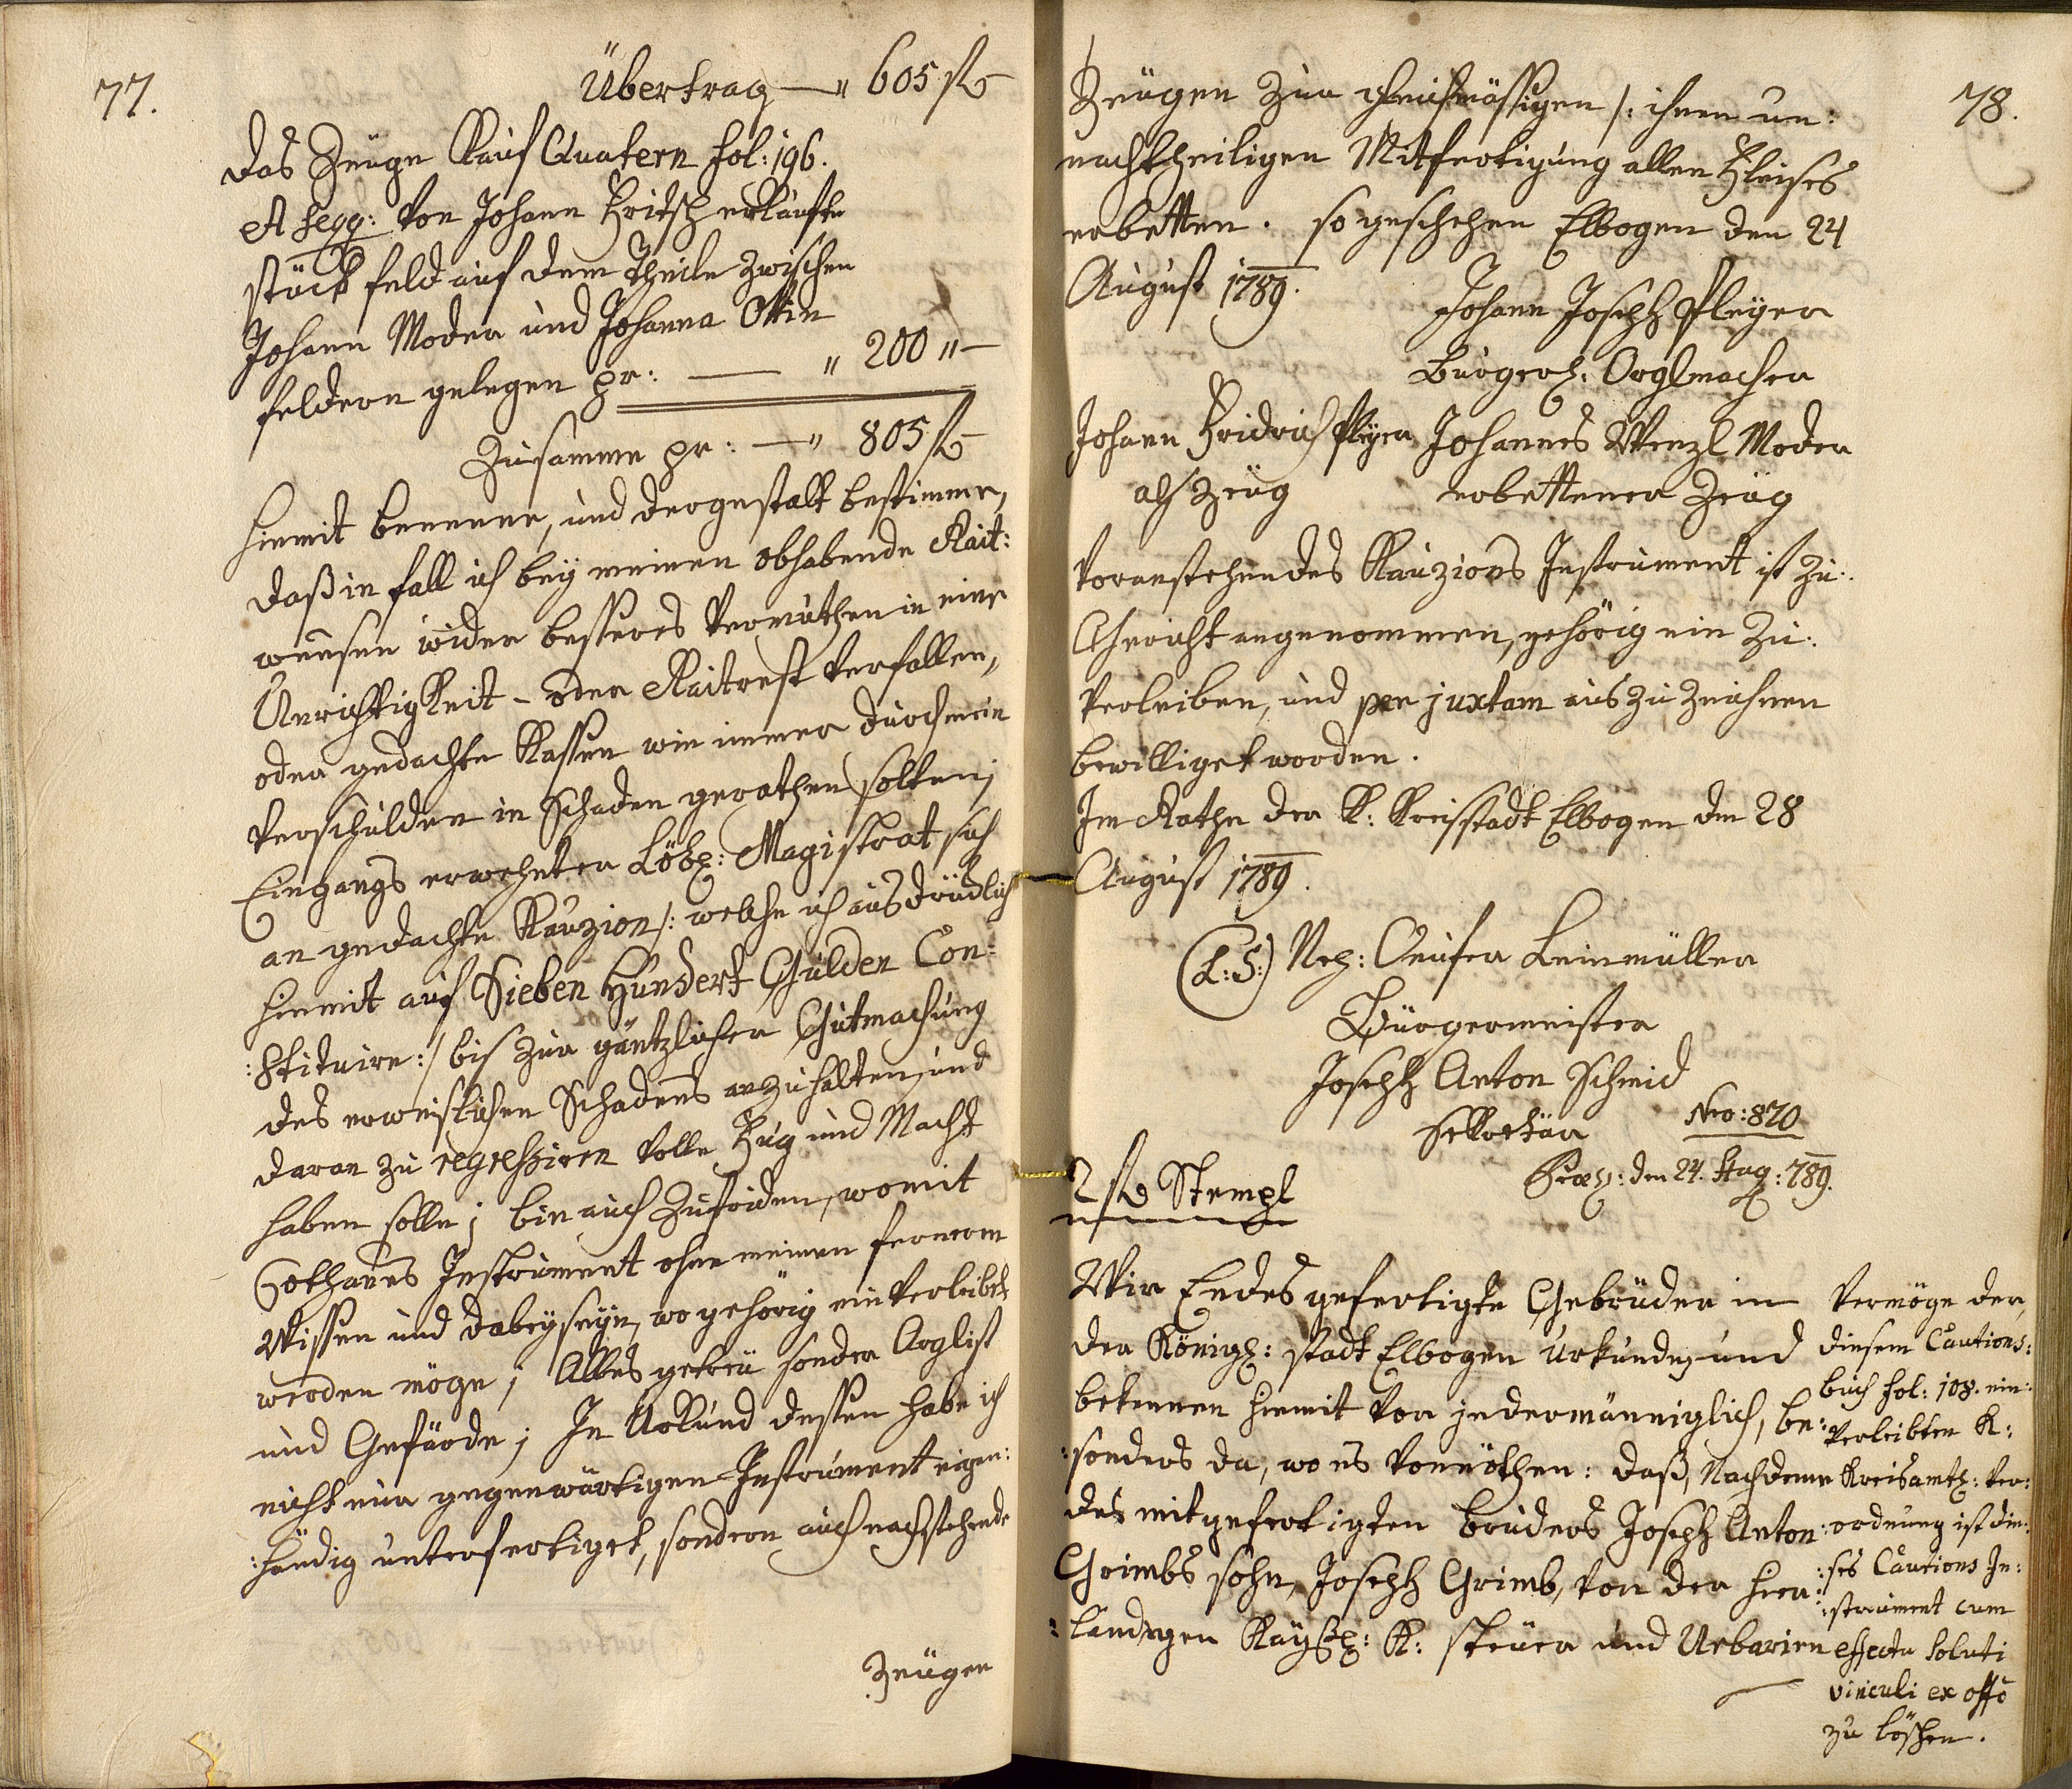 77.
Übertrag — " 605 fl
das Zeuge Kauf Quatern fol: 196.
A seqq: von Johann Fritsch erkaufte
stück feld auf dem Theile zwischen
Johann Moder und Johanna Ottin
feldern gelegen pr: — " 200 " —
Zusamme pr: — " 805 fl
hiemit benenne, und dergestalt bestimme,
daß in fall ich bey meinen obhabende Rait:
weesen wider besseres Vermuthen in eine
Unrichtigkeit - oder Raitrest verfallen,
oder gedachte Kassen wie immer durch mein
Verschulden in Schaden gerathen solten;
Eingangs erwehnter Löbl: Magistrat sich
an gedachte Kauzion /: welche ich ausdrücklich
hiemit auf Sieben Hundert Gulden Con:
:stituire :/ bis zur gäntzlicher Gutmachung
des erweislichen Schadens anzuhalten, und
daran zu regressiren volle Fug und Macht
haben solle; bin auch zufriden, womit
sothanes Instrument ohne meinen fernern
Wissen und dabeyseyn, wo gehörig ein verleibt
werden möge; Alles getreü sonder Arglist
und Gefärde; In Urkund dessen habe ich
nicht nur gegenwärtigen Instrument eigen:
:händig unterfertiget, sondern auch nachstehende
Zeügen
78.
Zeügen zur gleichmässigen /: ihnen un:
nachtheiligen Mitfertigung allen Fleises
erbetten. so geschehen Elbogen den 24
August 1789.
Johann Joseph Pleyer
Bürgerl: Orglmacher
Johann Fridrich Pleyer Johannes Wenzl Moder
als Zeüg erbettener Zeüg
Voranstehendes Kauzions Instrument ist zu:
Gericht angenommen, gehörig ein zu:
verleiben, und per juxtam auszuzeichnen
bewilliget worden.
Im Rathe der K: Kreisstadt Elbogen den 28
August 1789.
(L: S:) Leinmüller
Bürgermeister
Joseph Anton Schmid
Sekretär Nro: 870
Præs: den 24. Aug: 789.
2 fl Stempl
Wir Endes gefertigte Gebrüder in
der Königl: stadt Elbogen Urkunden und
bekennen hiemit vor jedermänniglich, be:
:sonders da, wo es vonnöthen: daß, Nachdeme
des mitgefertigten bruders Joseph Anton
Grimbs sohn, Joseph Grimb, von der hier:
:landigen Kaysl: K: steüer und Urbarien
Vermöge der,
diesem Cautions:
buch fol: 108. ein:
verleibten K:
Kreisamtl: ver:
:ordnung ist die:
:ses Cautions In:
:strument cum
effectu soluti
vinculi ex offo
zu löschen.